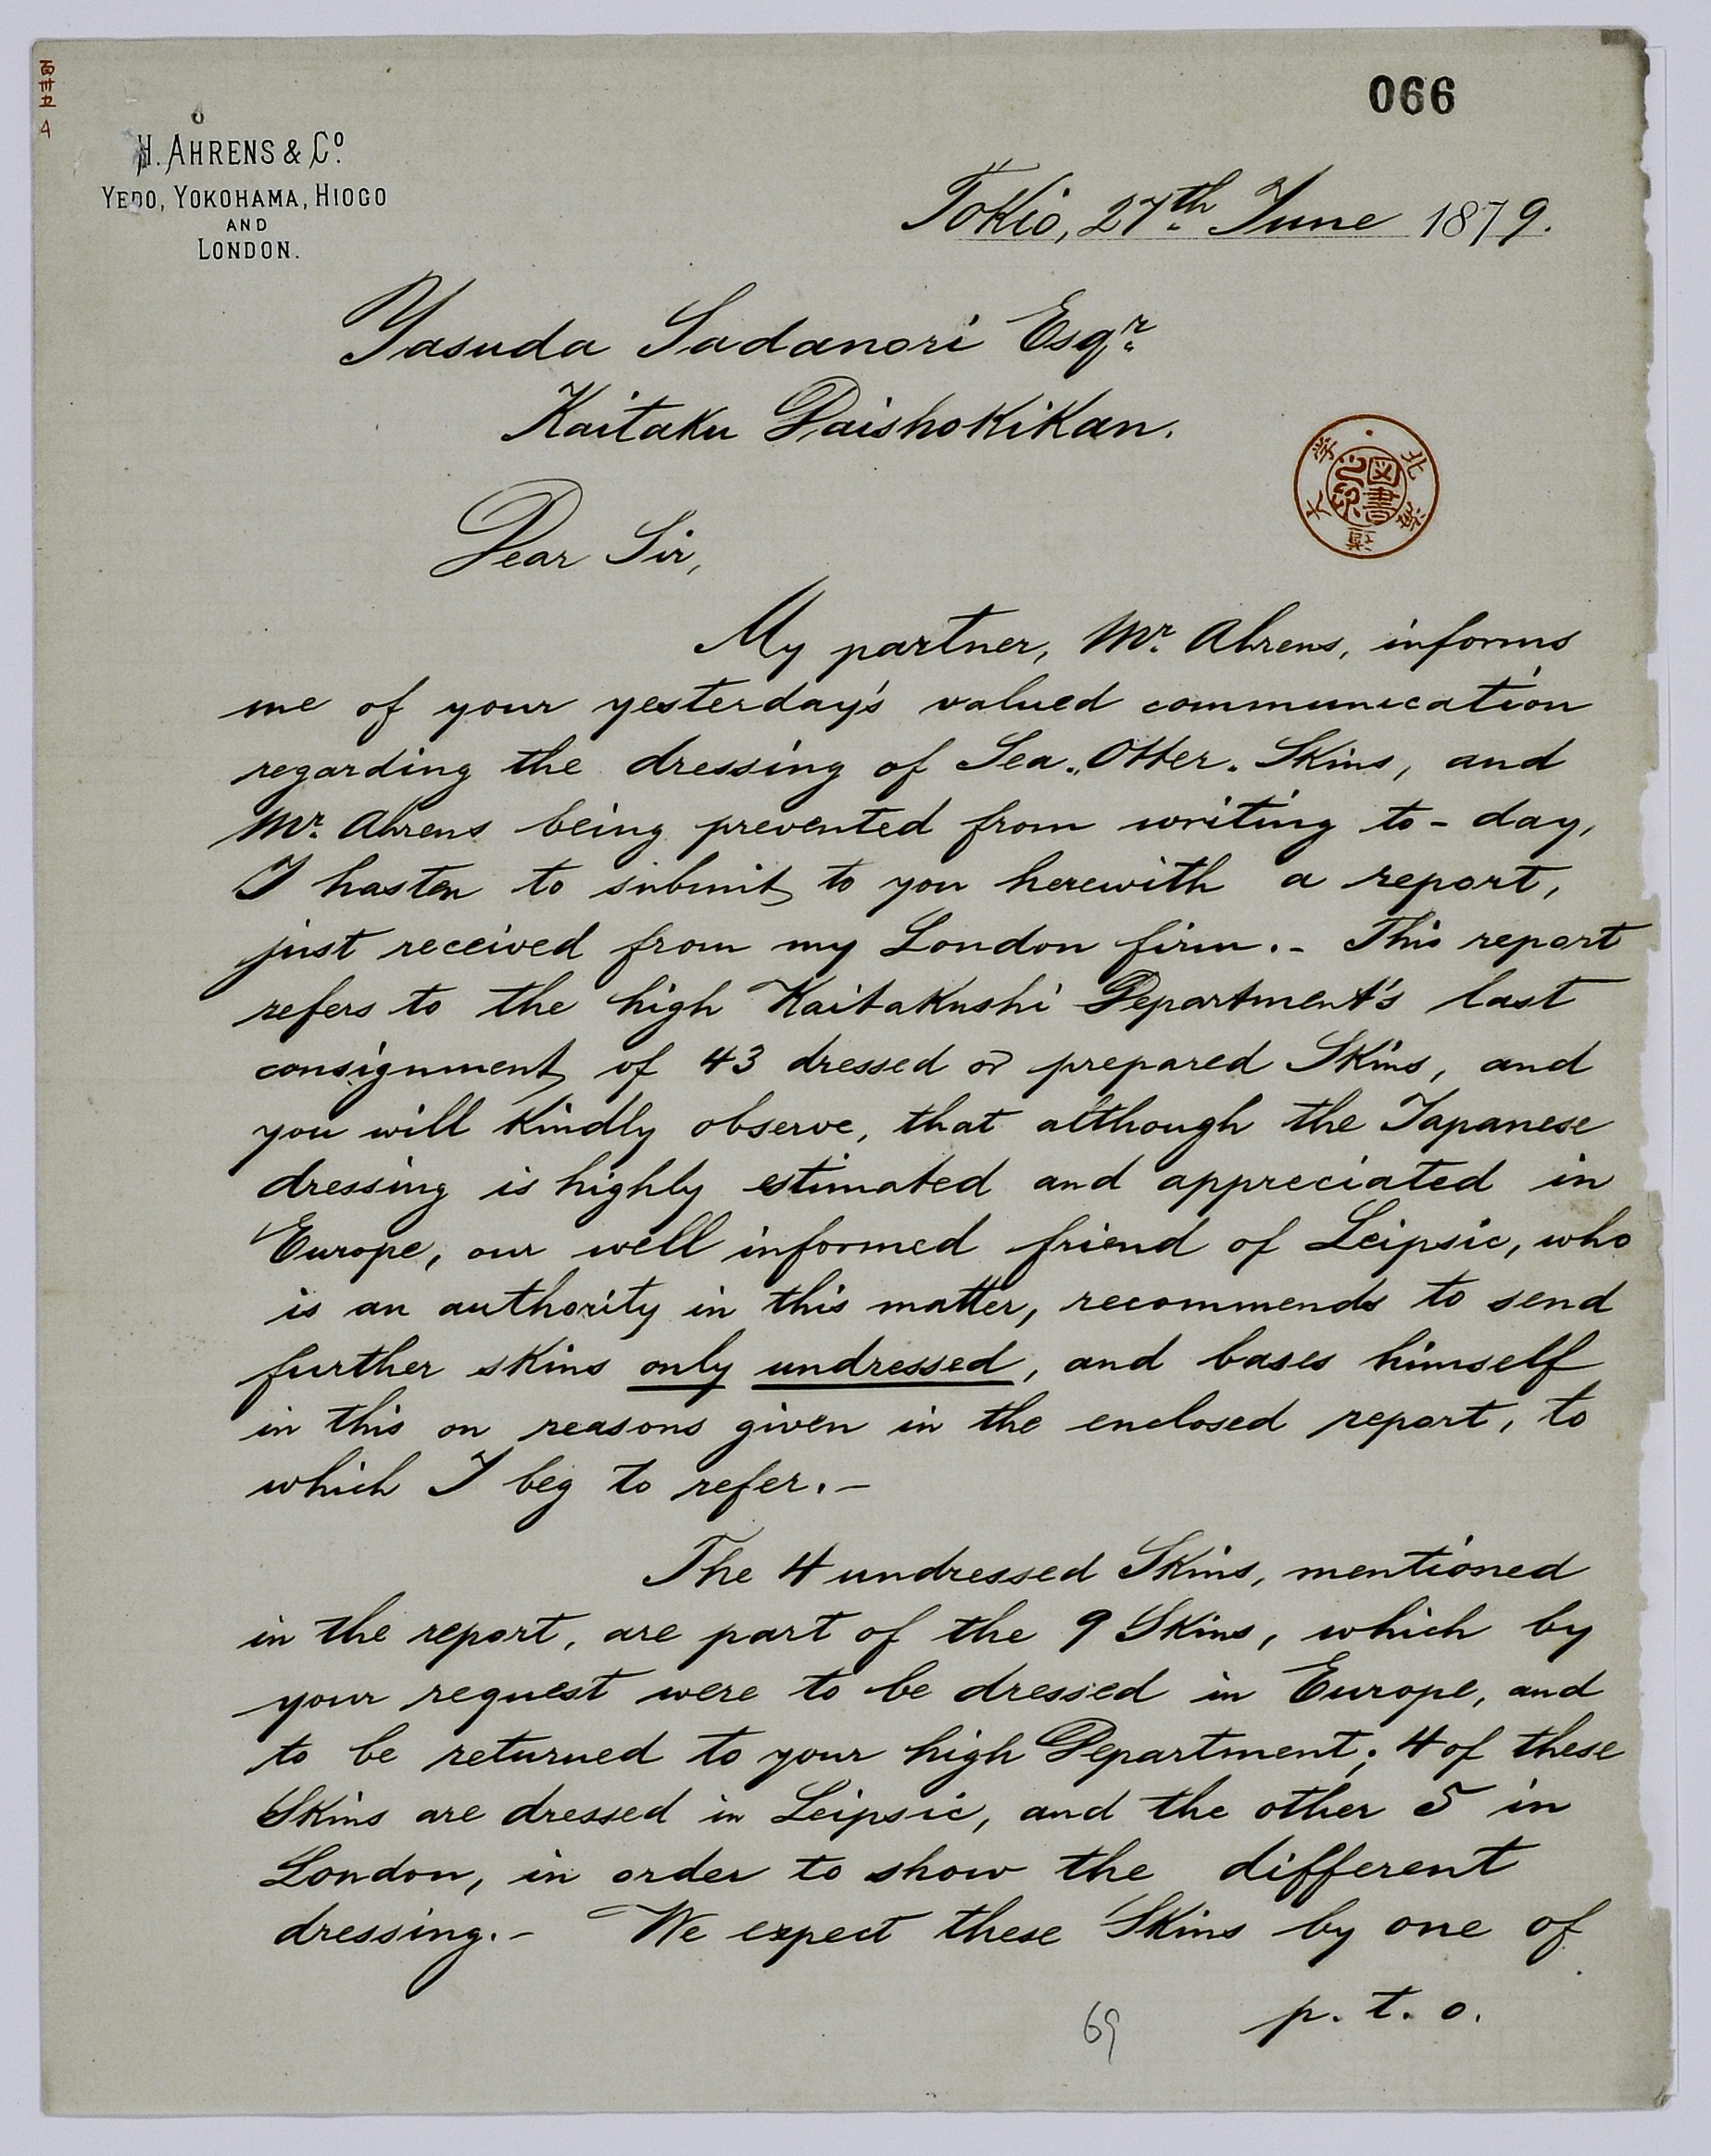 066
H. AHRENS & Cº.
YEDO, YOKOHAMA, HIOGO
AND
LONDON.
Tokio, 27th June 1879.
Yasuda Sadanori Esqr.
Kaitaku Daishokikan.
北海道
大学
図書
之印
Dear Sir,
My partner, Mr. Ahrens, informs
me of your yesterday's valued communication
regarding the dressing of Sea-Otter-Skins, and
Mr. Ahrens being prevented from writing to-day,
I hasten to submit to you herewith a report,
just received from my London firm.- This report
refers to the high Kaitakushi Department's last
consignment of 43 dressed or prepared Skins, and
you will kindly observe, that although the Japanese
dressing is highly estimated and appreciated in
Europe, our well informed friend of Leipsic, who
is an authority in this matter, recommends to send
further skins only undressed, and bases himself
in this on reasons given in the enclosed report, to
which I beg to refer.-
The 4 undressed Skins, mentioned
in the report, are part of the 9 Skins, which by
your request were to be dressed in Europe, and
to be returned to your high Department; 4 of these
Skins are dressed in Leipsic, and the other 5 in
London, in order to show the different
dressing.- We expect these Skins by one of
p. t. o.
69